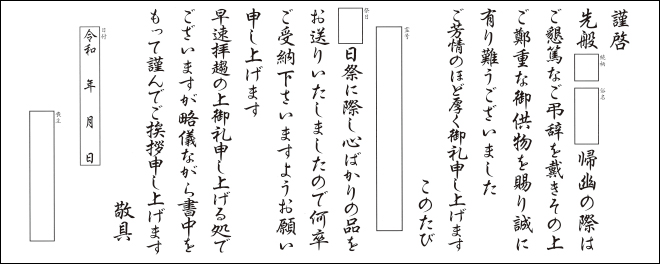 謹啓
先般 続柄 俗名 帰幽の際は
ご懇篤なご弔辞を戴きその上
ご鄭重な御供物を賜り誠に
有り難うございました
ご芳情のほど厚く御礼申し上げます
このたび
霊号
祭日 日祭に際し心ばかりの品を
お送りいたしましたので何卒
ご受納下さいますようお願い
申し上げます
早速拝趨の上御礼申し上げる処で
ございますが略儀ながら書中を
もって謹んでご挨拶申し上げます
敬具
日付
令和 年 月 日
喪主